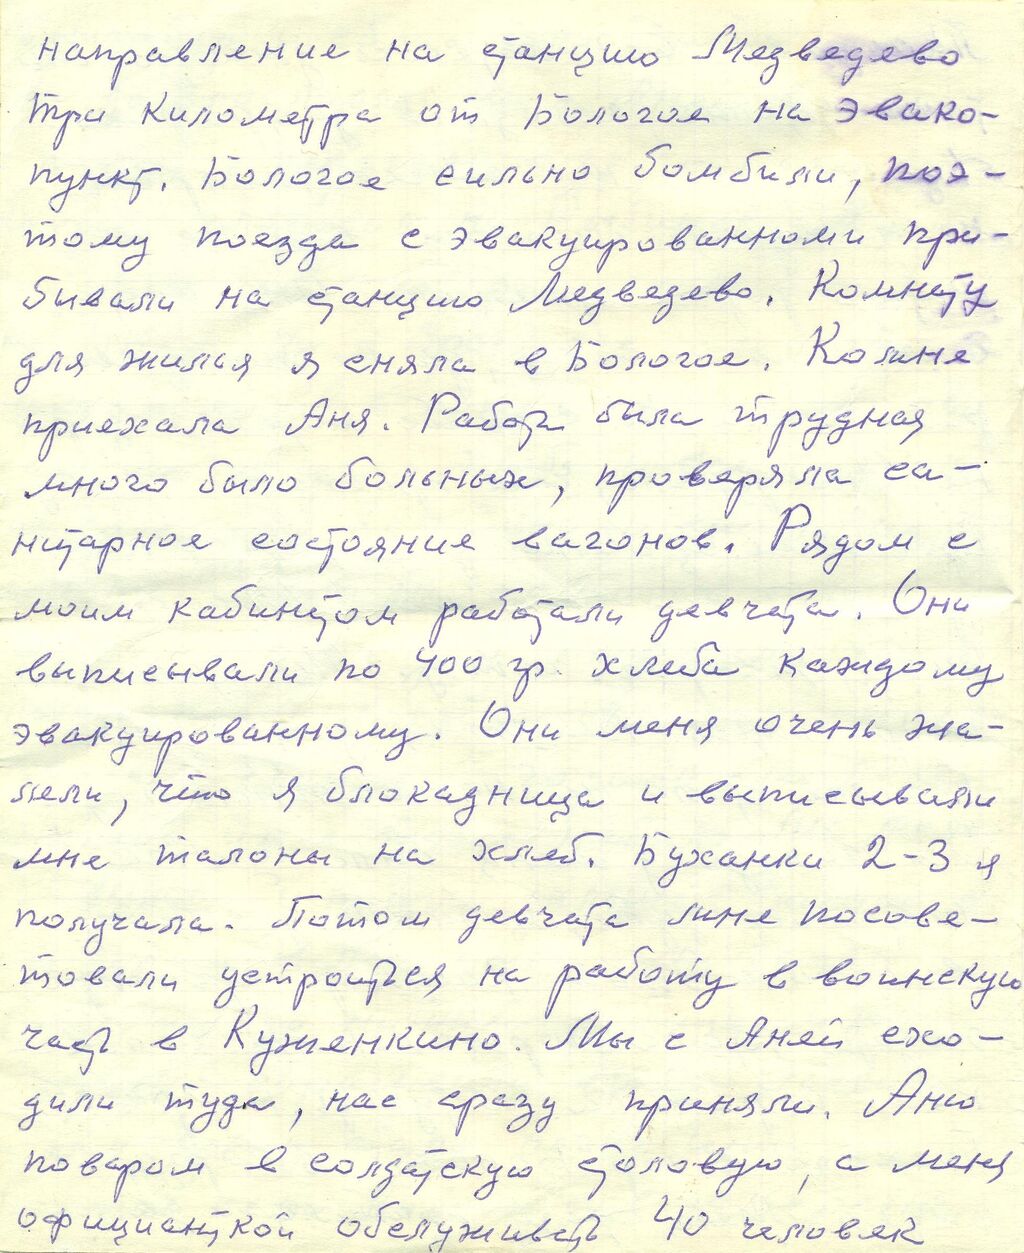 направление на станцию Медведево
три километра от Бологое на эвако-
пункт. Бологое сильно бомбили, поэ-
тому поезда с эвакуированными при-
бывали на станцию Медведево. Комнату
для жилья я сняла в Бологое. Ко мне
приехала Аня. Работа была трудная
много было больных, проверяла са-
нитарное состояние вагонов. Рядом с
моим кабинетом работали девчата. Они
выписывали по 400 гр. хлеба каждому
эвакуированному. Они меня очень жа-
лели, что я блокадница и выписывали
мне талоны на хлеб. Буханки 2-3 я
получала. Потом девчата мне посове-
товали устроиться на работу в воинскую
часть в Куженкино. Мы с Аней схо-
дили туда, нас сразу приняли. Аню
поваром в солдатскую столовую, а меня
официанткой обслуживать 40 человек